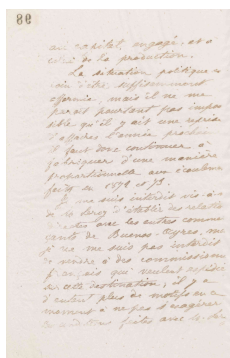 98
au capital, engagé, et à
celui de la production.
La situation politique
loin d'être suffisamment
affermie, mais il ne me
paraît pourtant pas impos
sible qu'il y ait une reprise
d'affaires l'année prochaine
il faut donc continuer à
fabriquer d'une manière
proportionnelle aux
en 1872 et 73.
Je me suis interdit vis-à-vis
de le Leroy d'établir des relations
directes avec les autres commer
çants de Buenos-Ayres,
je ne me suis pas interdit
de vendre à des commissionn
français qui veulent
sur cette destination, il y a
d'autant plus de motifs en ce
moment à ne pas s'exagérer
conditions faites avec le